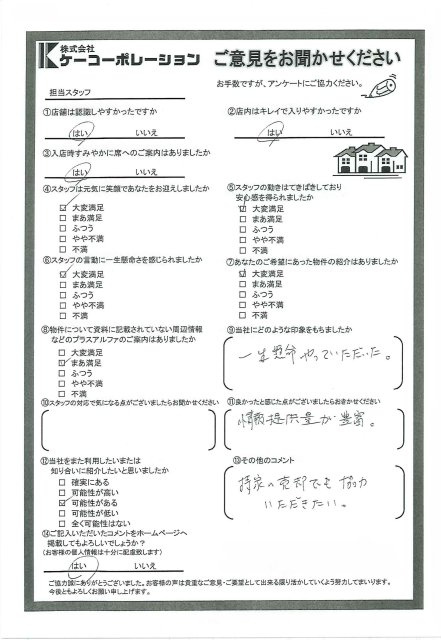 株式会社
ケーコーポレーション
ご意見をお聞かせください
お手数ですが、アンケートにご協力ください。
担当スタッフ
①店舗は認識しやすかったですか
はい いいえ
②店内はキレイで入りやすかったですか
はい いいえ
③入店時すみやかに席へのご案内はありましたか
はい いいえ
④スタッフは元気に笑顔であなたをお迎えしましたか
大変満足
まあ満足
ふつう
やや不満
不満
⑤スタッフの動きはてきぱきしており
安心感を得られましたか
大変満足
まあ満足
ふつう
やや不満
不満
⑥スタッフの言動に一生懸命さを感じられましたか
大変満足
まあ満足
ふつう
やや不満
不満
⑦あなたのご希望にあった物件の紹介はありましたか
大変満足
まあ満足
ふつう
やや不満
不満
⑧物件について資料に記載されていない周辺情報
などのプラスアルファのご案内はありましたか
大変満足
まあ満足
ふつう
やや不満
不満
⑨当社にどのような印象をもちましたか
一生懸命やっていただいた。
⑩スタッフの対応で気になる点がございましたらお聞かせください
⑪良かったと感じた点がございましたらおきかせください
情報提供量が豊富。
⑫当社をまた利用したいまたは
知り合いに紹介したいと思いましたか
確実にある
可能性が高い
可能性がある
可能性が低い
全く可能性はない
⑬その他のコメント
持家の売却でも協力
いただきたい。
⑭ご記入いただいたコメントをホームページへ
掲載してもよろしいでしょうか?
(お客様の個人情報は十分に配慮致します)
はい いいえ
ご協力誠にありがとうございました。お客様の声は貴重なご意見・ご要望として出来る限り活かしていくよう努力してまいります。
今後ともよろしくお願い申し上げます。